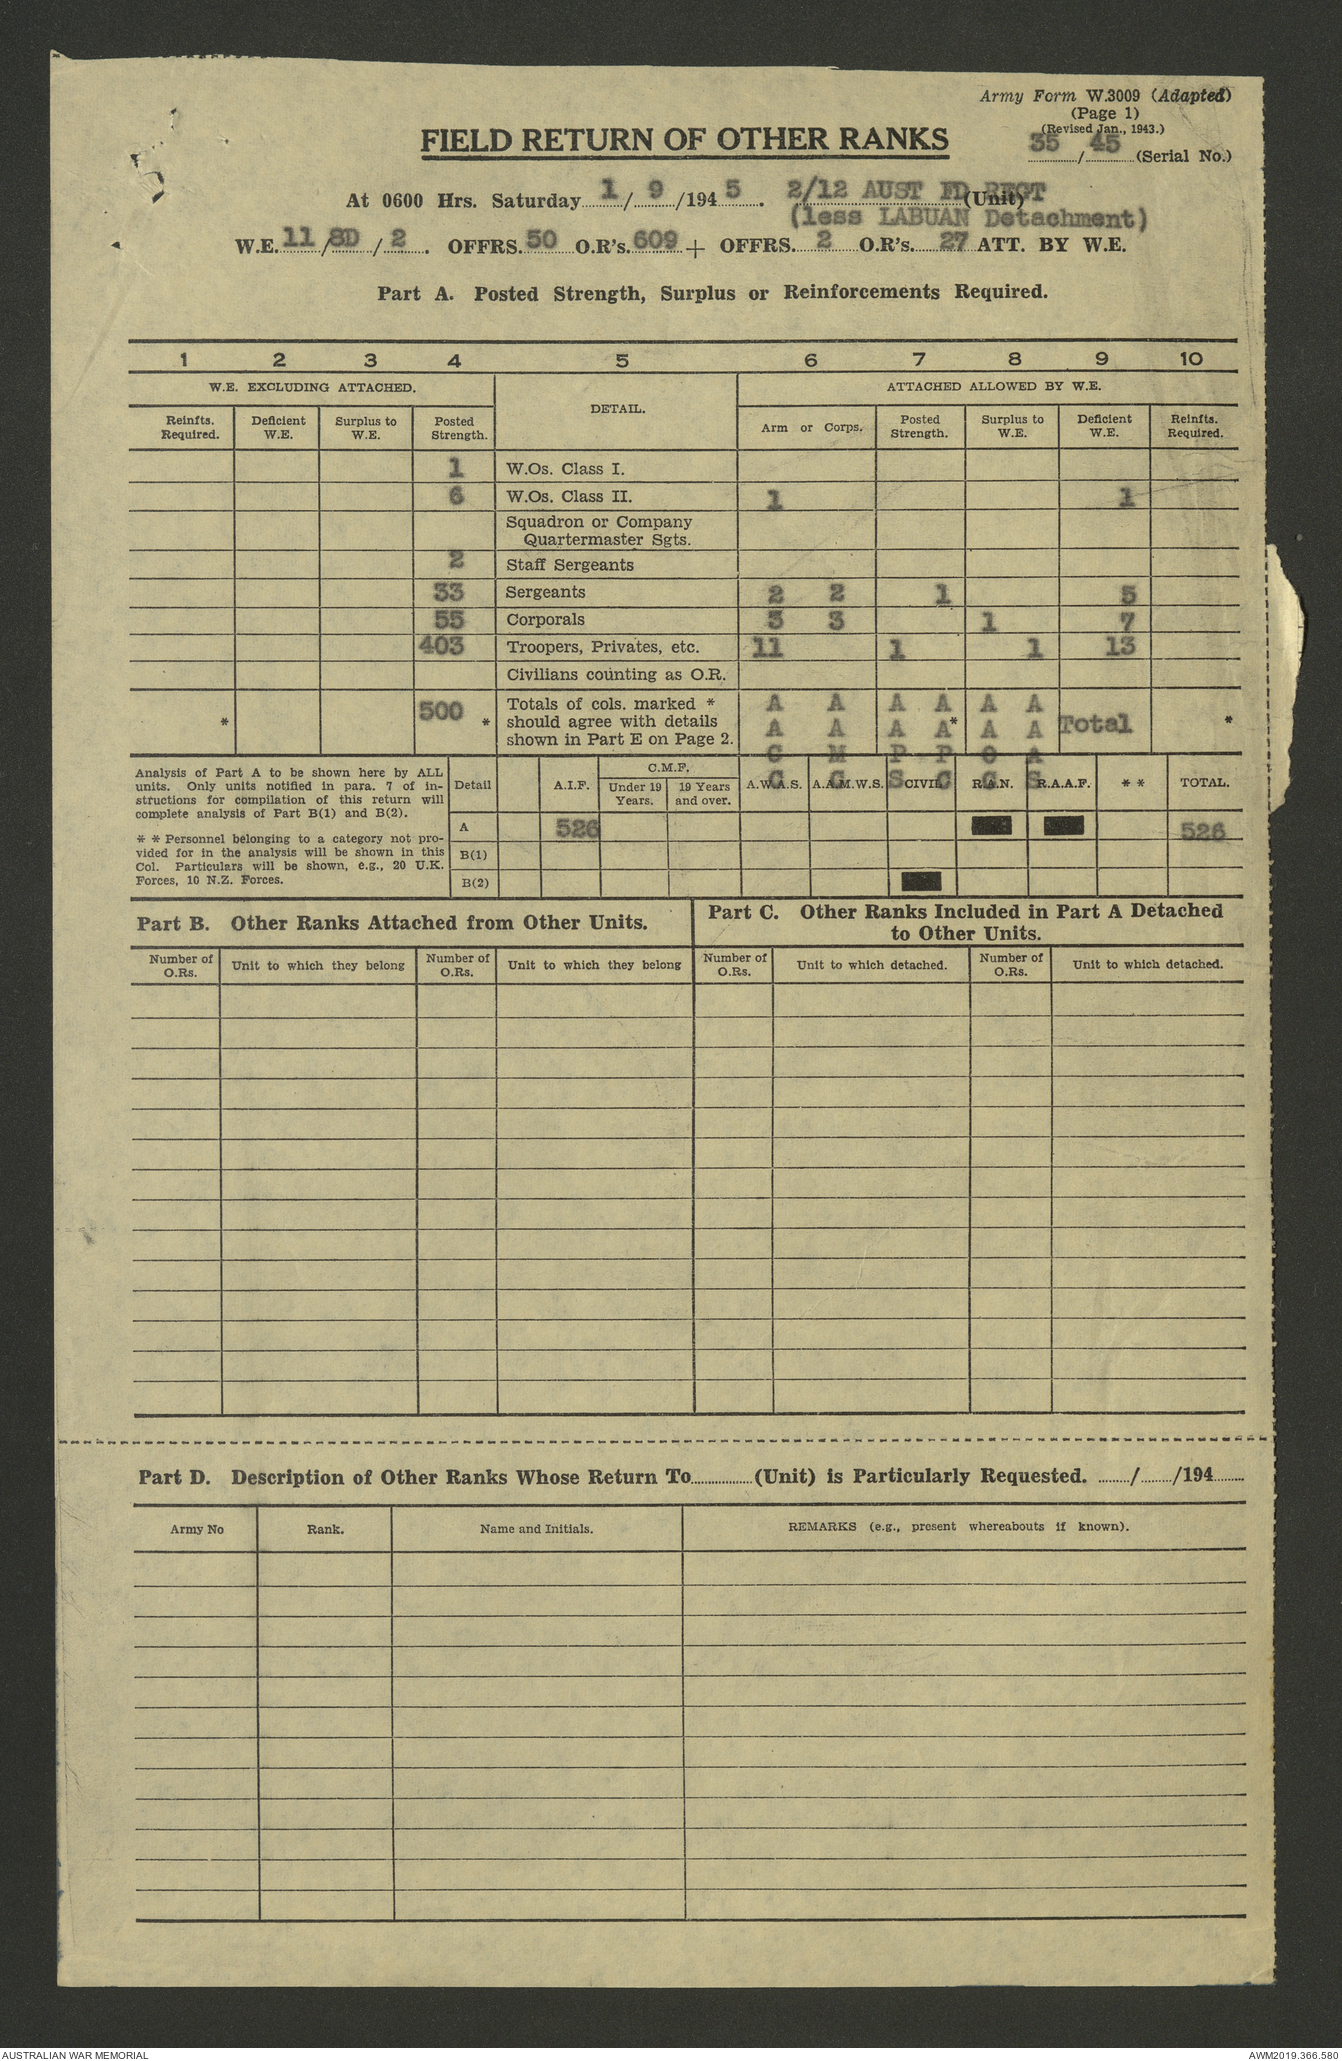 Army Form W.3009 (Adapted)
(Page 1)
(Revised Jan., 1943.)
35 / 45 (Serial No.)
FIELD RETURN OF OTHER RANKS
At 0600 Hrs. Saturday 1 / 9 /194 5 . 2/12 AUST FD REGT (Unit)
(less LABUAN Detachment)
W.E. 11 / 8D / 2 . OFFRS. 50 O.R's. 609 + OFFRS. 2 O.R's. 27 ATT. BY W.E.
Part A. Posted Strength, Surplus or Reinforcements Required.
1 2 3 4 5 6 7 8 9 10
W.E. EXCLUDING ATTACHED. DETAIL. ATTACHED ALLOWED BY W.E.
Reinfts. Required. Deficient W.E. Surplus to W.E. Posted Strength. Arm or Corps. Posted Strength. Surplus to W.E. Deficient W.E. Reinfts. Required.
1 W.Os. Class I.
6 W.Os. Class II. 1 1
Squadron or Company
Quartermaster Sgts.
2 Staff Sergeants
33 Sergeants 2 2 1 5
55 Corporals 3 3 1 7
403 Troopers, Privates, etc. 11 1 1 13
Civilians counting as O.R.
* 500 * Totals of cols. marked * A A A A A A
should agree with details A A A A* A A Total *
shown in Part E on Page 2. C M P P O A
G G S C G S
Analysis of Part A to be shown here by ALL
units. Only units notified in para. 7 of in-
structions for compilation of this return will
complete analysis of Part B(1) and B(2).
* * Personnel belonging to a category not pro-
vided for in the analysis will be shown in this
Col. Particulars will be shown, e.g., 20 U.K.
Forces, 10 N.Z. Forces.
Detail A.I.F. C.M.F. Under 19 Years. 19 Years and over. A.W.A.S. A.A.M.W.S. CIVIL R.A.N. R.A.A.F. * * TOTAL.
A 526 526
B(1)
B(2)
Part B. Other Ranks Attached from Other Units.
Part C. Other Ranks Included in Part A Detached
to Other Units.
Number of O.Rs. Unit to which they belong Number of O.Rs. Unit to which they belong Number of O.Rs. Unit to which detached. Number of O.Rs. Unit to which detached.
Part D. Description of Other Ranks Whose Return To............(Unit) is Particularly Requested. ......./......./194.......
Army No Rank. Name and Initials. REMARKS (e.g., present whereabouts if known).
AUSTRALIAN WAR MEMORIAL
AWM2019.366.580